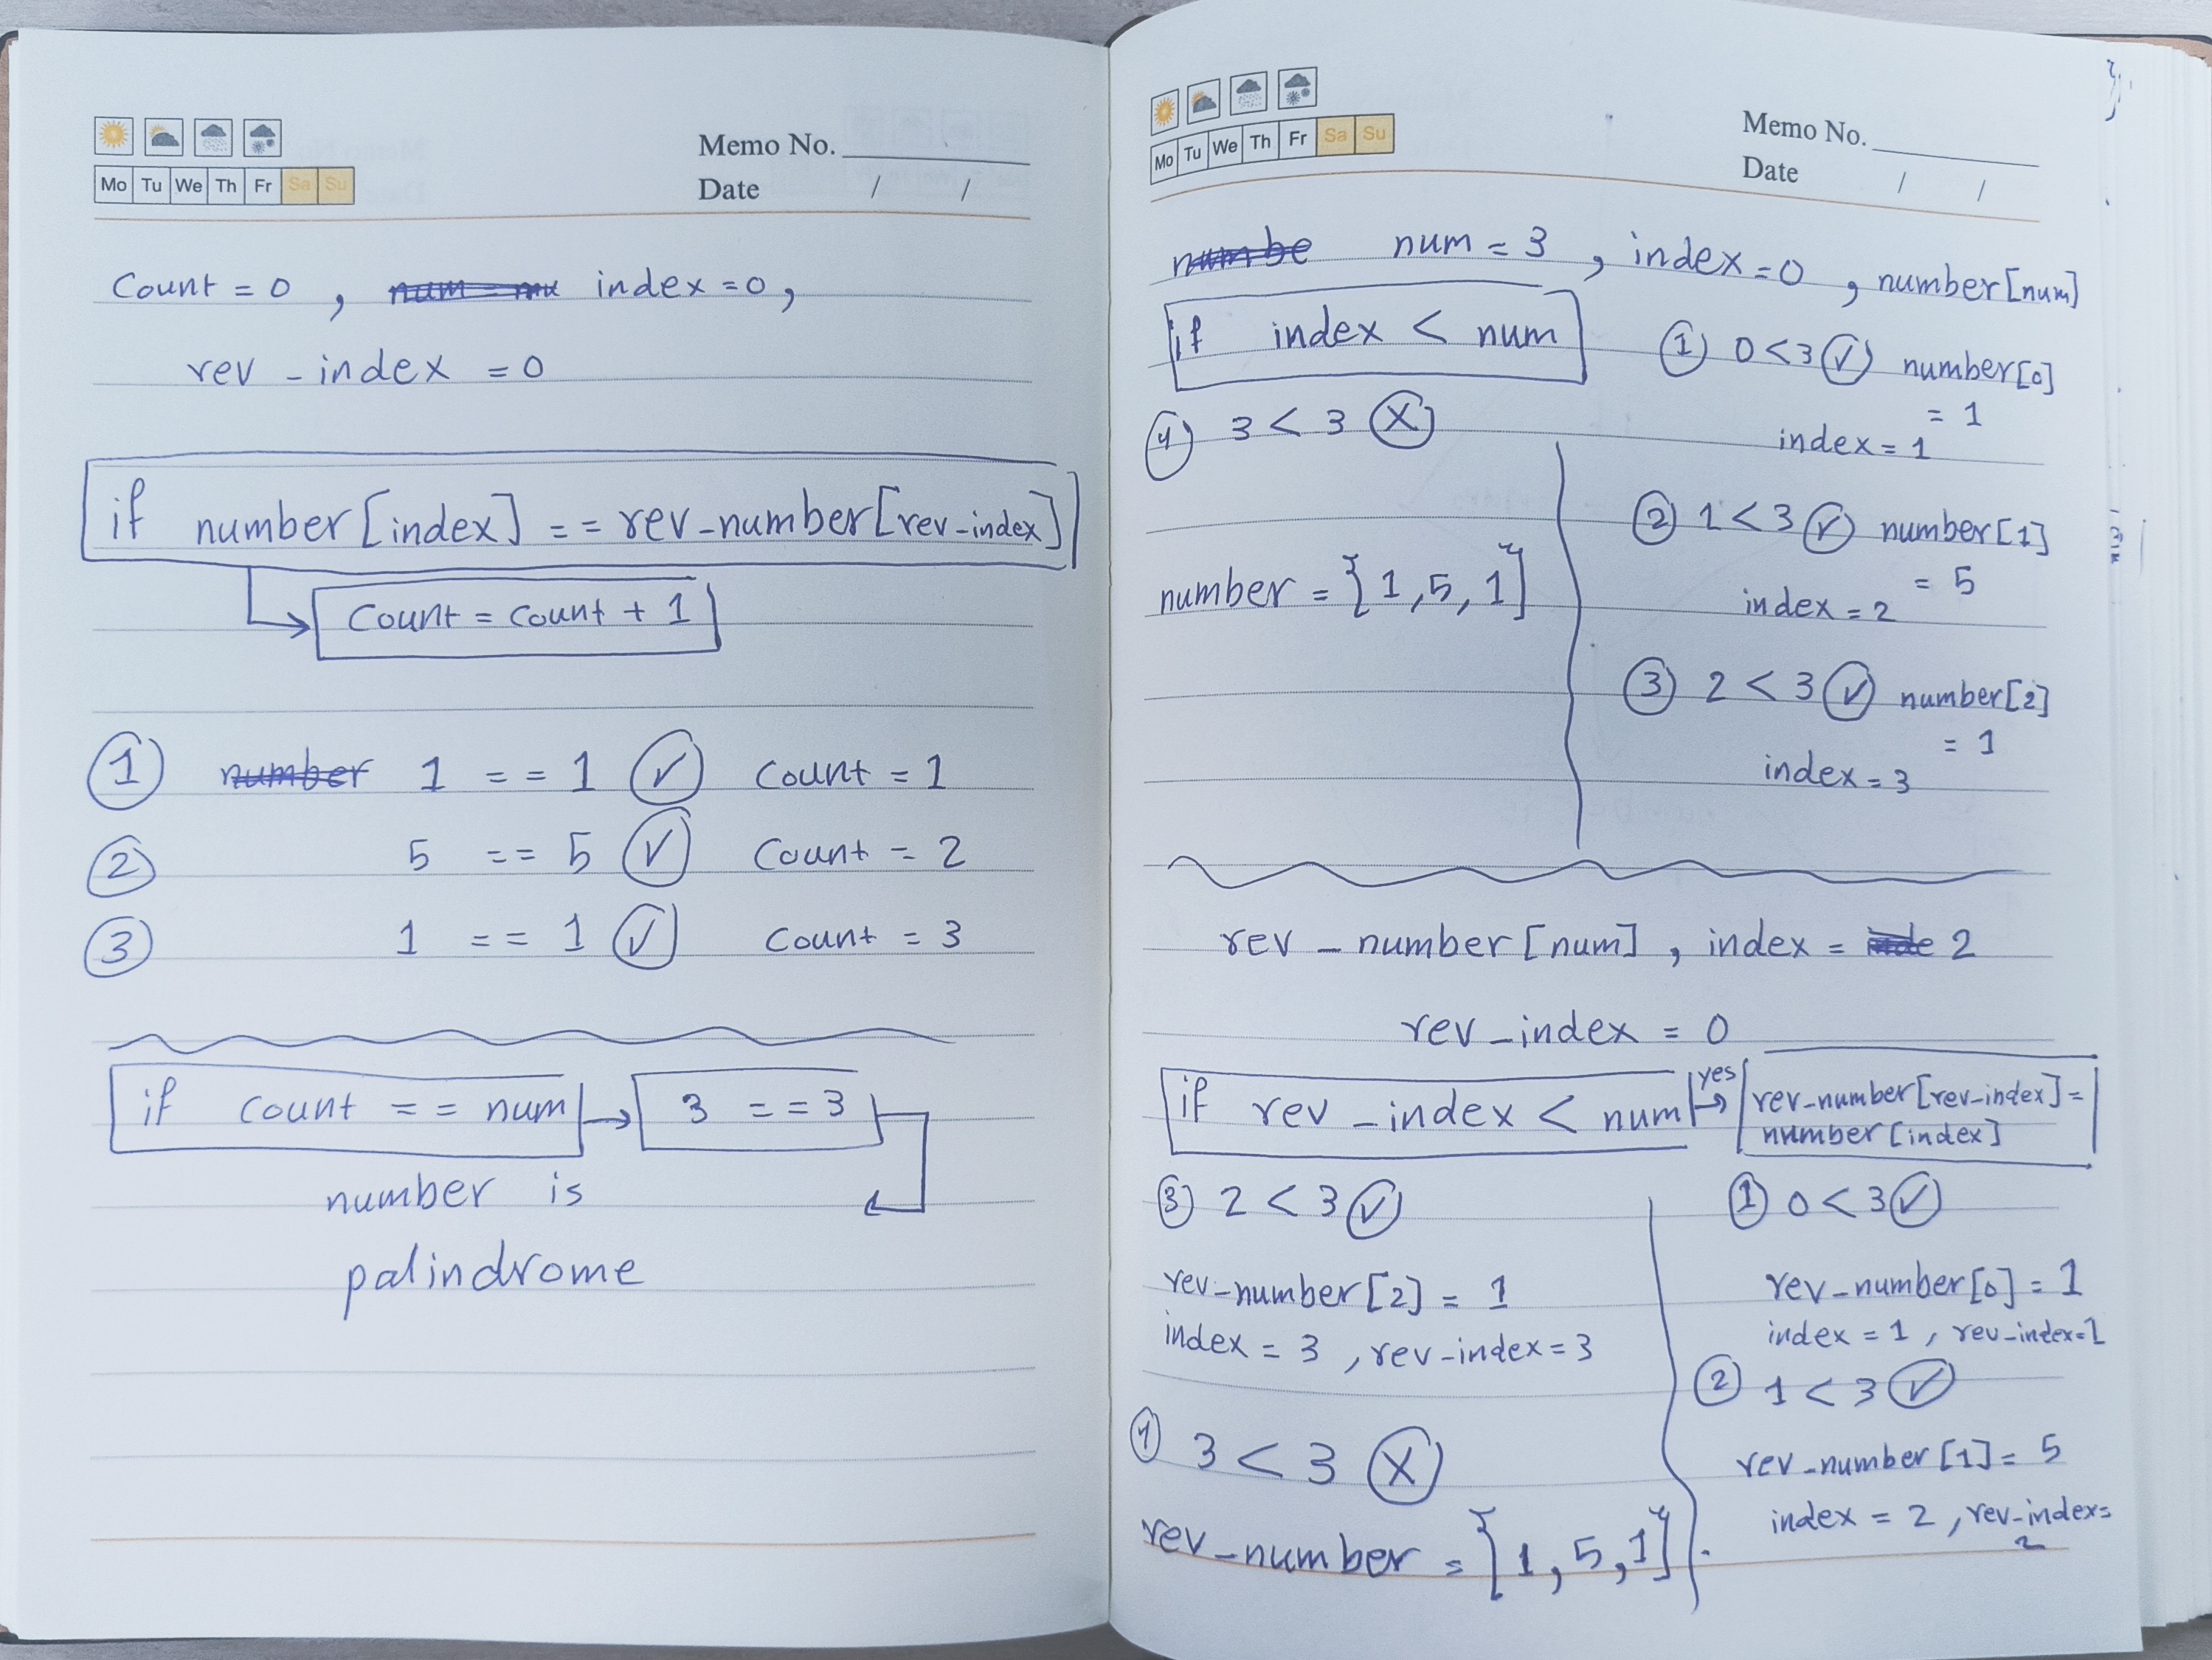 Mo Tu We Th Fr Sa Su
Memo No.
Date / /
Count = 0 , index = 0,
rev - index = 0
if number [index] == rev-number[rev-index]
Count = Count + 1
1 number 1 == 1 Count = 1
2 5 == 5 Count = 2
3 1 == 1 Count = 3
if count == num 3 == 3
number is
palindrome
Mo Tu We Th Fr Sa Su
Memo No.
Date / /
numbe num = 3 , index = 0 , number [num]
if index < num
1 0 < 3 number[0]
= 1
index = 1
4 3 < 3 X
2 1 < 3 number[1]
= 5
index = 2
number = {1,5,1}
3 2 < 3 number[2]
= 1
index = 3
rev - number [num] , index = 2
rev_index = 0
if rev - index < num yes rev-number[rev-index] =
number [index]
1 0 < 3
rev-number[0] = 1
index = 1 , rev-index=1
2 1 < 3
rev-number [1] = 5
index = 2 , rev-index=
2
3 2 < 3
rev-number [2] = 1
index = 3 , rev-index = 3
4 3 < 3 X
rev-number = {1,5,1}